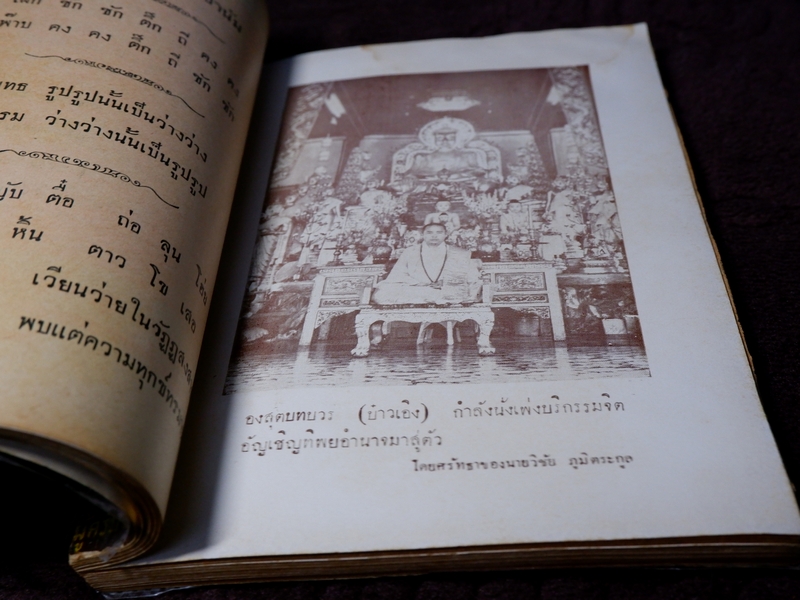 ซัก ซัก ตึก ถี คง คง
คง คง ตึก ถี ซัก ซัก
รูปรูปนั้นเป็นว่างว่าง
ว่างว่างนั้นเป็นรูปรูป
ตื๋อ ถ่อ ลุน
หั้น ตาว โซ เสอ
เวียนว่ายในวัฏฏสงส
พบแต่ความทุกข์ทร
องสุตบทบวร (บ๋าวเอิง) กำลังนั่งเพ่งบริกรรมจิต
อัญเชิญทิพยอำนาจมาสู่ตัว
โดยศรัทธาของนายวิชัย ภูมิตระกูล